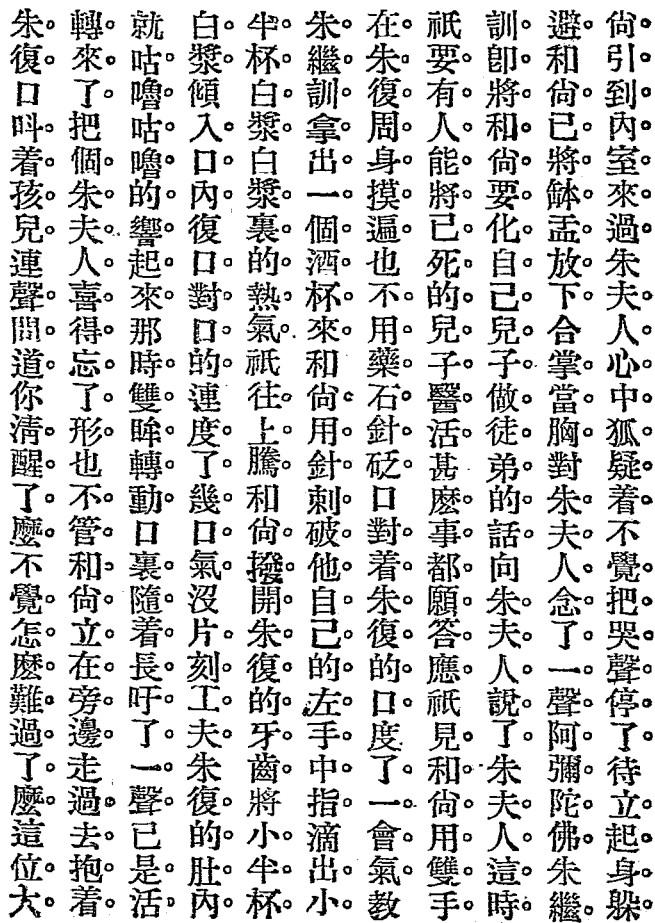 尙引到內室來過朱夫人心中狐疑着不覺把哭聲停了待立起身躱
避和尙已將缽盂放下合掌當胸對朱夫人念了一聲阿彌陀佛朱繼
訓卽將和尙要化自己兒子做徒弟的話向朱夫人說了朱夫人這時
祇要有人能將已死的兒子醫活甚麽事都願答應祇見和尙用雙手
在朱復周身摸遍也不用藥石針砭口對着朱復的口度了一會氣敎
朱繼訓拿出一個酒杯來和尙用針刺破他自己的左手中指滴出小
半杯白漿白漿裏的熱氣祇往上騰和尙撥開朱復的牙齒將小半杯
白漿傾入口內復口對口的連度了幾口氣沒片刻工夫朱復的肚內
就咕嚕咕嚕的響起來那時雙眸轉動口裏隨着長吁了一聲已是活
轉來了把個朱夫人喜得忘了形也不管和尙立在旁邊走過去抱着
朱復口呌着孩兒連聲問道你淸醒了麽不覺怎麽難過了麽這位大